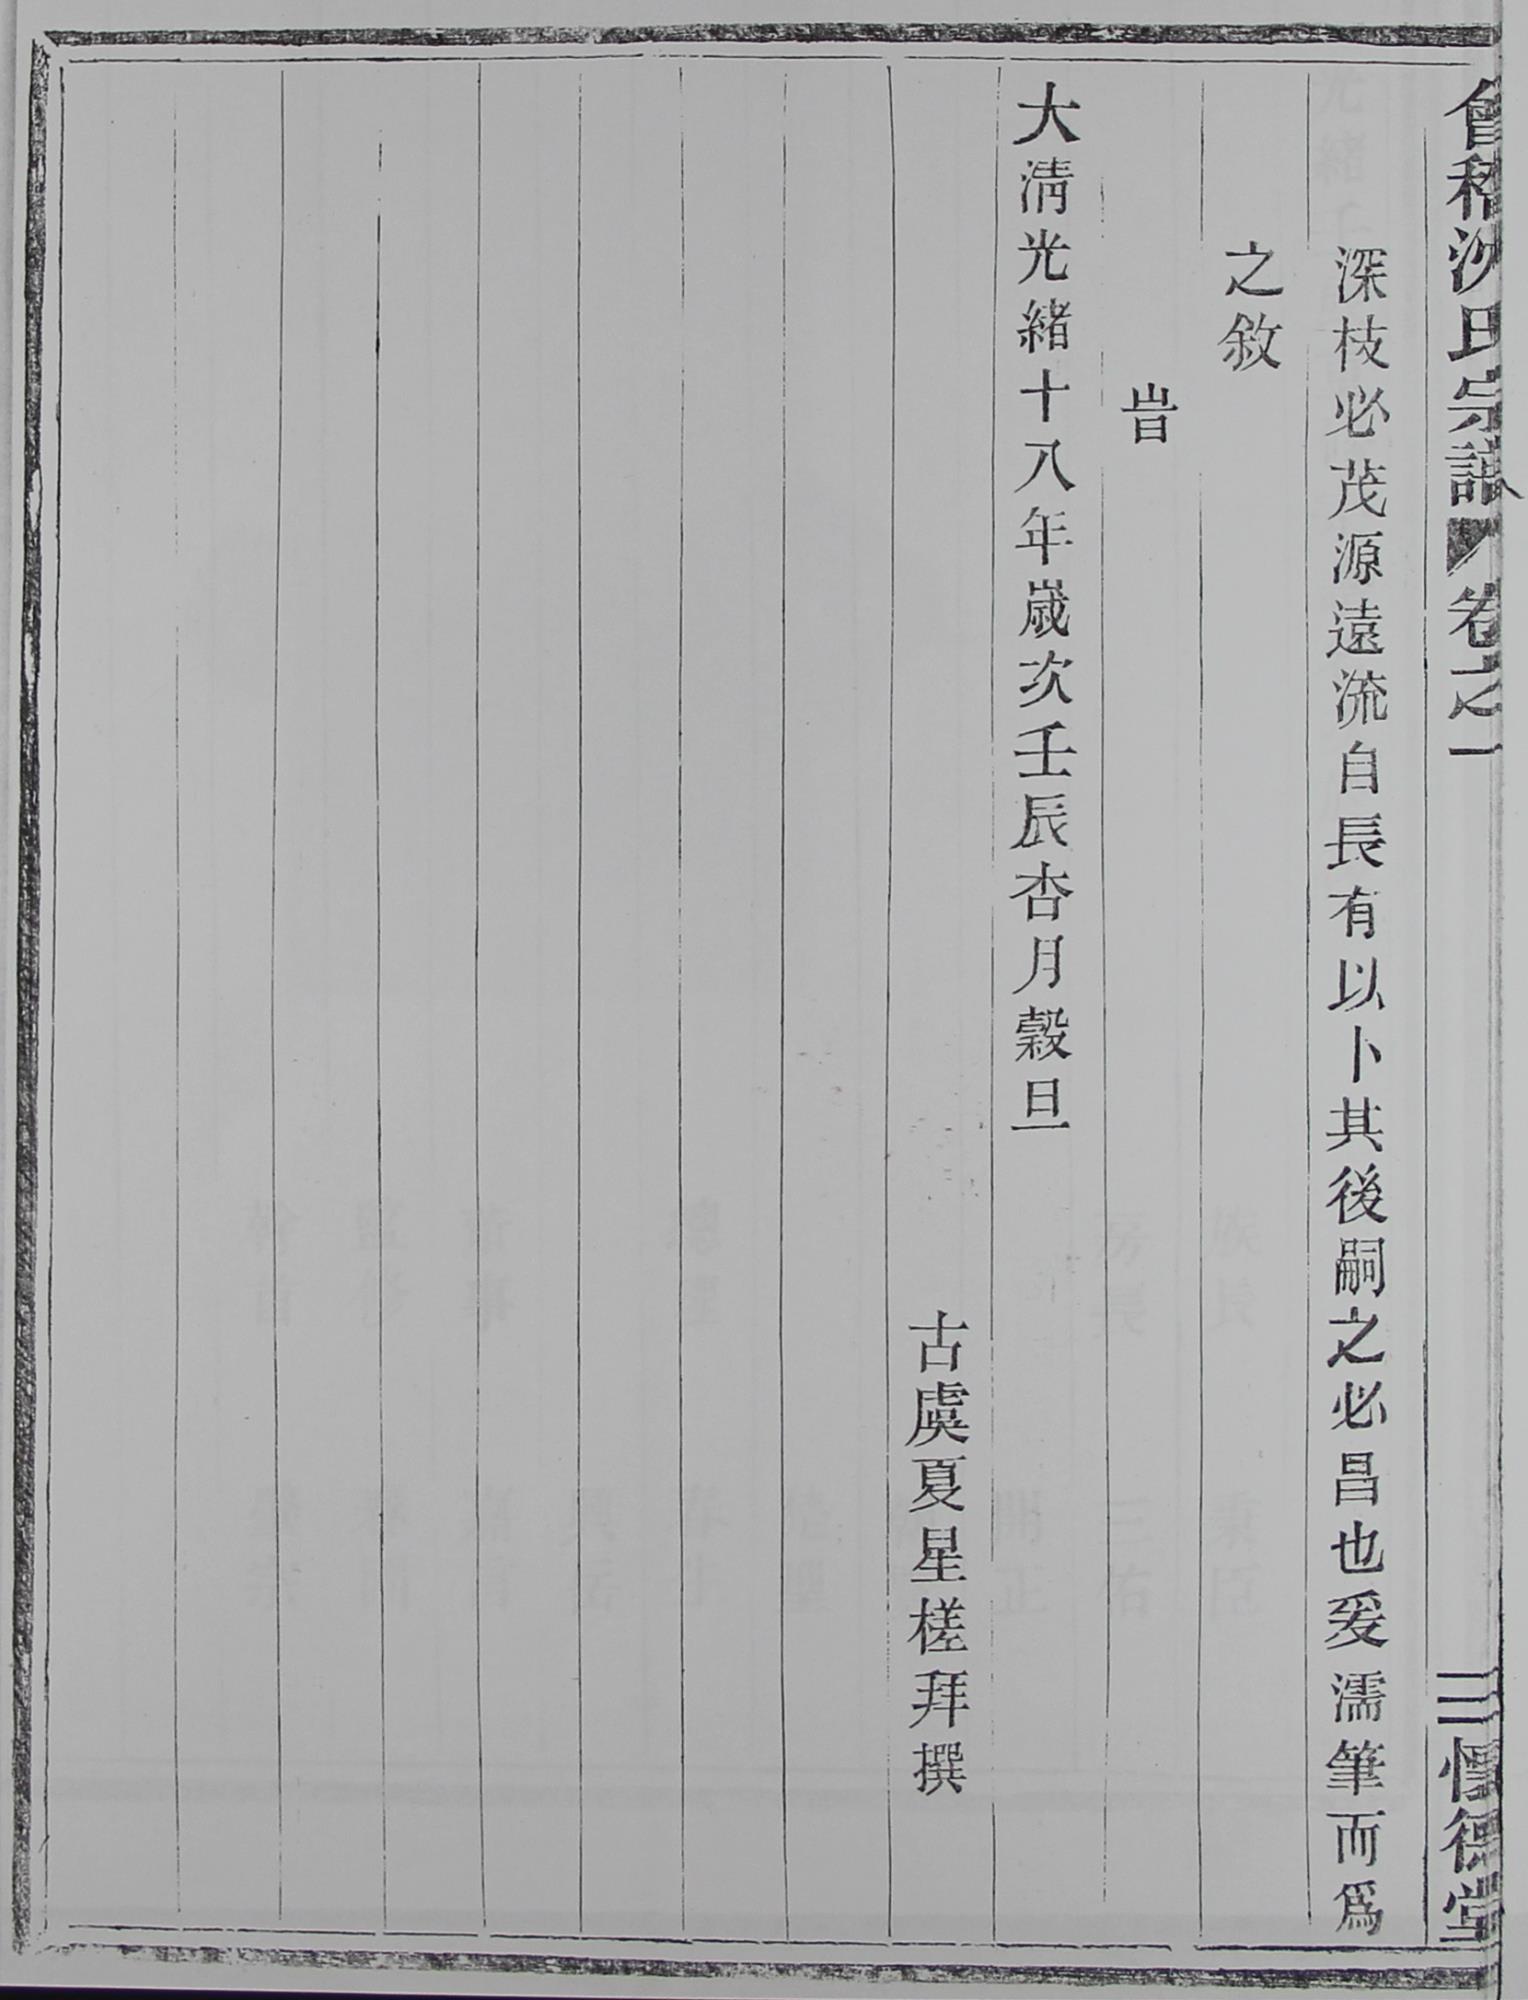 會稽沈氏宗譜 卷之一 三 懷德堂
深枝必茂源遠流自長有以卜其後嗣之必昌也爰濡筆而爲
之敘
旹
大淸光緒十八年歲次壬辰杏月穀旦
古虞夏星槎拜撰